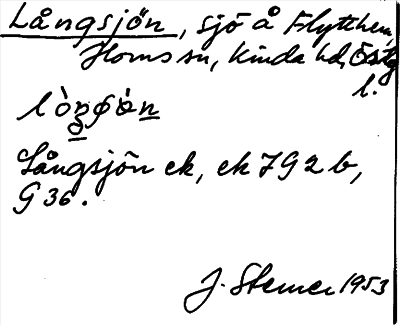 Långsjön, sjö å Flytthem,
Horns sn, Kinda hd, Östg
l.
Långsjön ek, ek 7G2b,
G36.
J. Stemer 1953